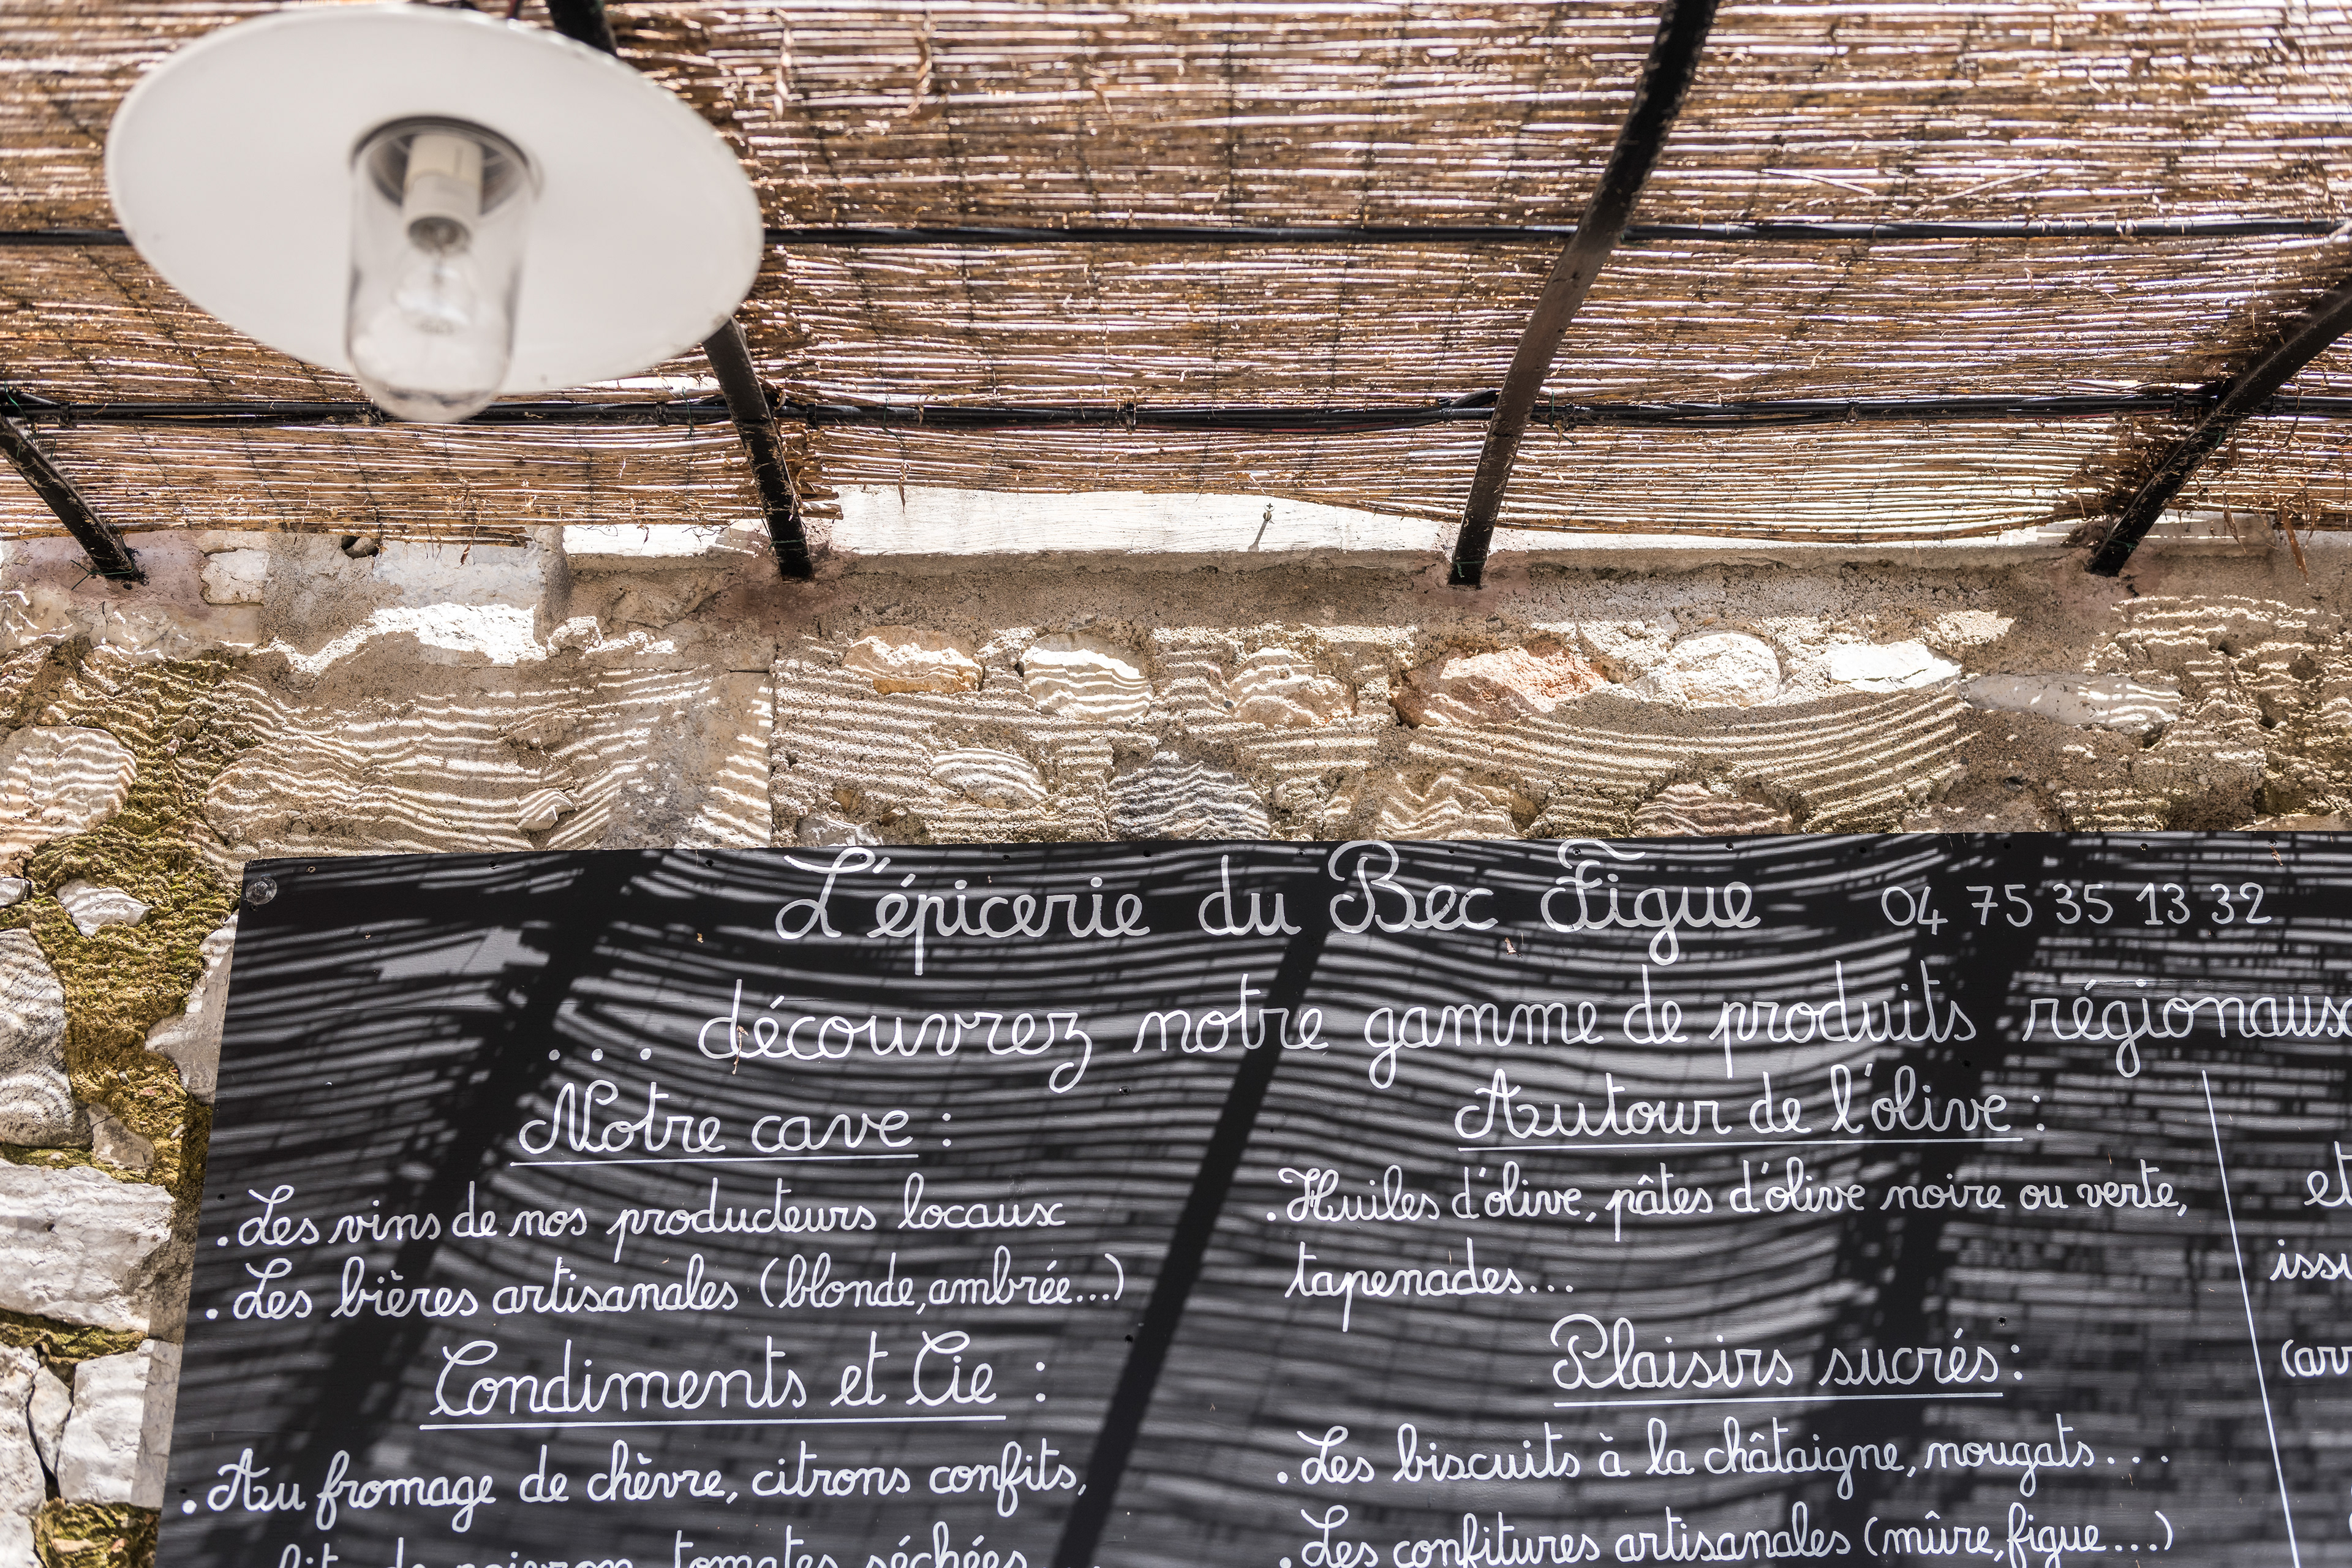 L'épicerie du Bec Figue 04 75 35 13 32
... découvrez notre gamme de produits régionaux
Notre cave :
. Les vins de nos producteurs locaux
. Les bières artisanales (blonde, ambrée...)
Condiments et Cie :
. Au fromage de chèvre, citrons confits,
de poivron, tomates séchées
Autour de l'olive :
. Huiles d'olive, pâtes d'olive noire ou verte,
tapenades...
Plaisirs sucrés :
. Les biscuits à la châtaigne, nougats...
. Les confitures artisanales (mûre, figue...)
et
issu
(arr